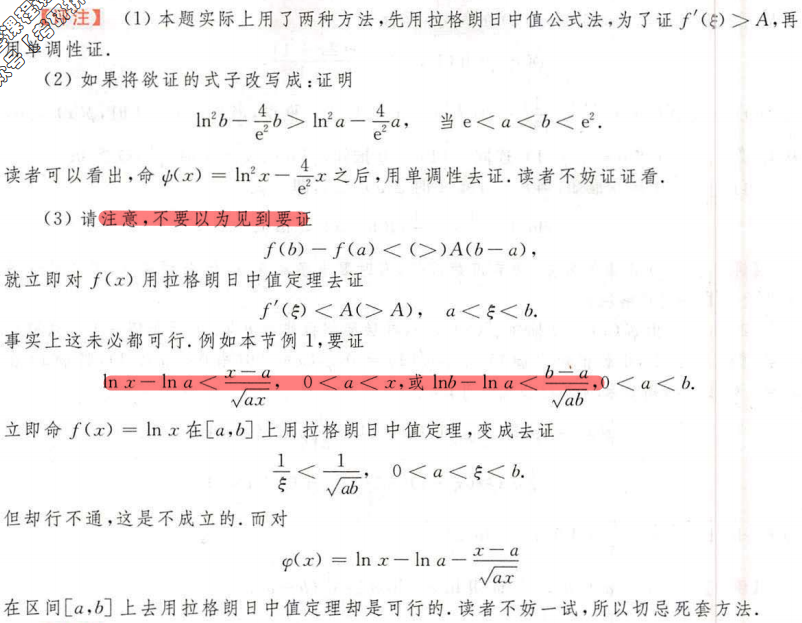 【评注】 (1) 本题实际上用了两种方法,先用拉格朗日中值公式法,为了证 f′(ξ) > A,再
用单调性证.
(2) 如果将欲证的式子改写成:证明
ln²b − \frac{4}{e²}b > ln²a − \frac{4}{e²}a, 当 e < a < b < e².
读者可以看出,命 ψ(x) = ln²x − \frac{4}{e²}x 之后,用单调性去证.读者不妨证证看.
(3) 请注意,不要以为见到要证
f(b) − f(a) < (>)A(b − a),
就立即对 f(x) 用拉格朗日中值定理去证
f′(ξ) < A(> A), a < ξ < b.
事实上这未必都可行.例如本节例 1,要证
ln x − ln a < \frac{x − a}{\sqrt{ax}}, 0 < a < x,或 lnb − ln a < \frac{b − a}{\sqrt{ab}},0 < a < b.
立即命 f(x) = ln x 在[a,b]上用拉格朗日中值定理,变成去证
\frac{1}{ξ} < \frac{1}{\sqrt{ab}}, 0 < a < ξ < b.
但却行不通,这是不成立的.而对
φ(x) = ln x − ln a − \frac{x − a}{\sqrt{ax}}
在区间[a,b]上去用拉格朗日中值定理却是可行的.读者不妨一试,所以切忌死套方法.